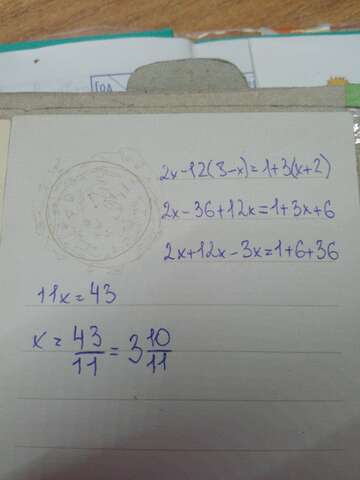 2x-12(3-x)=1+3(x+2)
2x-36+12x=1+3x+6
2x+12x-3x=1+6+36
11x=43
x=43/11=3 10/11